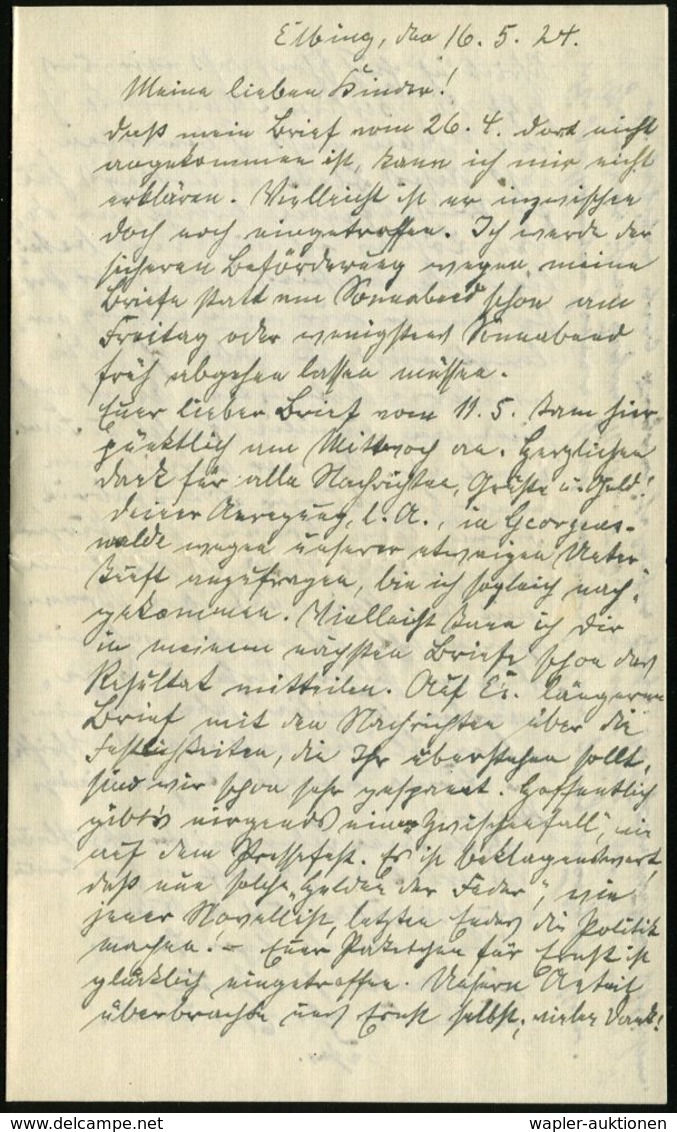 Elbing, den 16. 5. 24.
Meine lieben Kinder!
Daß mein Brief vom 26. 4. dort nicht
angekommen ist, kann ich mir nicht
erklären. Vielleicht ist er inzwischen
doch noch eingetroffen. Ich werde der
sicheren Beförderung wegen meine
Briefe statt am Sonnabend schon am
Freitag oder wenigstens Sonnabend
früh abgehen lassen müssen.
Euer lieber Brief vom 11. 5. kam hier
pünktlich am Mittwoch an. Herzlichen
Dank für alle Nachrichten, Grüße u. Geld!
Deiner Anregung, l. A., in Georgens-
walde wegen unserer etwaigen Unter-
kunft anzufragen, bin ich sogleich nach-
gekommen. Vielleicht kann ich Dir
in meinem nächsten Briefe schon das
Resultat mitteilen. Auf Er. längeren
Brief mit den Nachrichten über die
Festlichkeiten, die Ihr überstehen sollt,
sind wir schon sehr gespannt. Hoffentlich
gibt's nirgends einen „Zwischenfall“, wie
auf dem Pressefest. Es ist beklagenswert,
daß nun solche „Helden der Feder“, wie
jener Novellist, letzten Endes die Politik
machen! – Euer Paketchen für Ernst ist
glücklich eingetroffen. Unsern Anteil
überbrachte uns Ernst selbst; vielen Dank!
wapler-auktionen